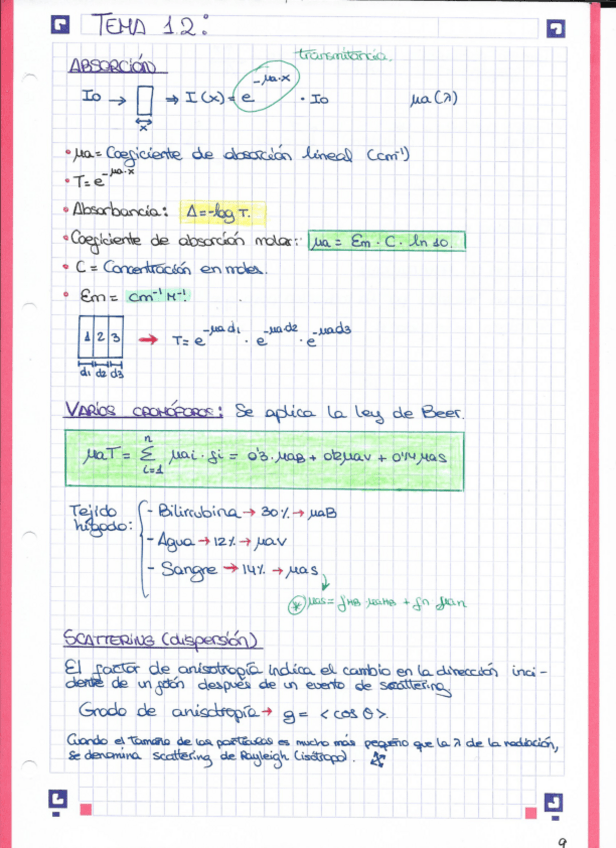 TEMA 1.2:
transmitancia.
ABSORCIÓN
I₀ → ⇒ I(x) = e^-μa·x · I₀ μa(λ)
x
• μa = Coeficiente de absorción lineal (cm⁻¹)
• T = e^-μa·x
• Absorbancia: A = -log T.
• Coeficiente de absorción molar: μa = Em · C · ln 10.
• C = Concentración en moles.
• Em = cm⁻¹ M⁻¹.
1 2 3 → T = e^-μad1 · e^-μad2 · e^-μad3
d1 d2 d3
VARIOS CROMÓFOROS: Se aplica la ley de Beer.
μaT = Σ μai · fi = 0'3·μaB + 012μav + 0'14μas
n
i=1
Tejido hígado:
- Bilirrubina → 30% → μaB
- Agua → 12% → μav
- Sangre → 14% → μas
* μas = fHB μaHB + fn μan
SCATTERING (dispersión)
El factor de anisotropía indica el cambio en la dirección inci-
dente de un fotón después de un evento de scattering.
Grado de anisotropía → g = <cos θ>.
Cuando el tamaño de las partículas es mucho más pequeño que la λ de la radiación,
se denomina scattering de Rayleigh (isótropo).
9